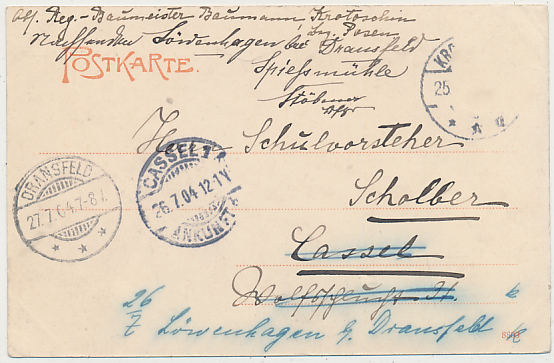 Abs. Reg.-Baumeister Baumann, Krotoschin
Bz. Posen
Nachsenden Löwenhagen bei Dransfeld
POSTKARTE.
Spiessmühle
KRO
25
Herrn Schulvorsteher
DRANSFELD
27.7.04.7-8V.
CASSEL 1
26.7.04.12-1V
ANKUNFT
Scholber
Cassel
26/7 Löwenhagen b/ Dransfeld